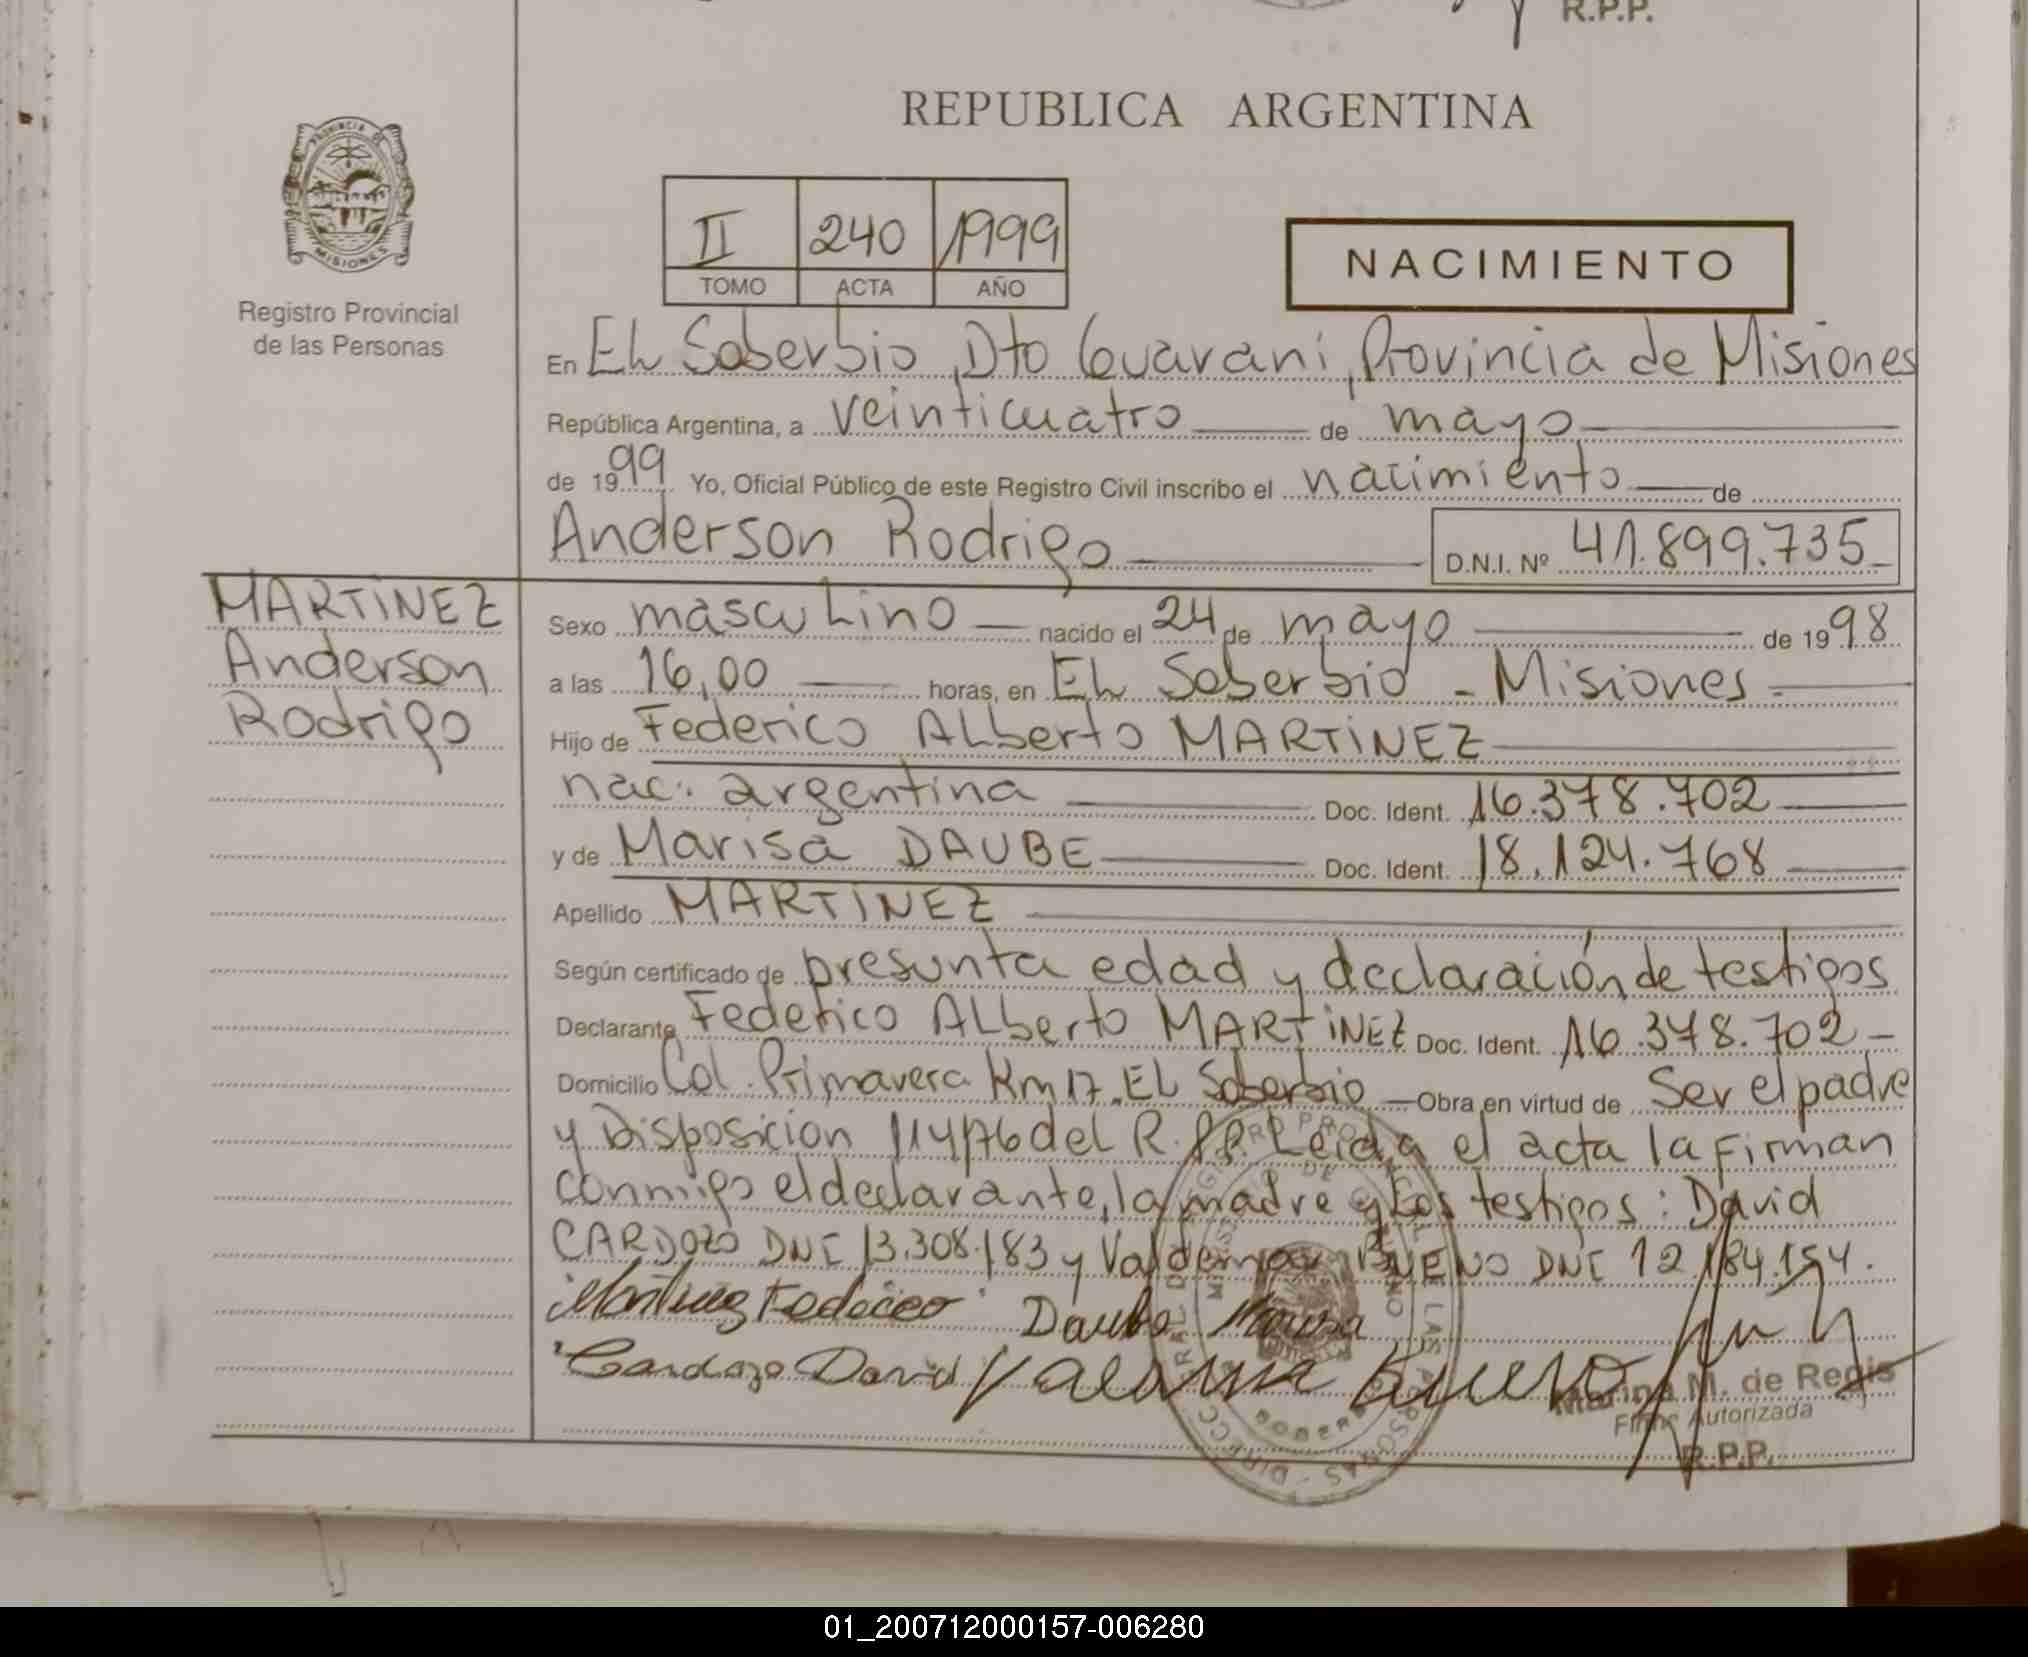 R.P.P.
REPUBLICA ARGENTINA
PROVINCIA DE
MISIONES
Registro Provincial
de las Personas
II 240 1999
TOMO ACTA AÑO
NACIMIENTO
En EL Soberbio, Dto Guaraní, Provincia de Misiones
República Argentina, a veinticuatro de mayo
de 1999 Yo, Oficial Público de este Registro Civil inscribo el nacimiento de
Anderson Rodrigo D.N.I. Nº 41.899.735
MARTINEZ
Anderson
Rodrigo
Sexo mascuLino nacido el 24 de mayo de 1998
a las 16,00 horas, en EL Soberbio - Misiones
Hijo de Federico ALberto MARTINEZ
nac. argentina Doc. Ident. 16.378.702
y de Marisa DAUBE Doc. Ident. 18.124.768
Apellido MARTINEZ
Según certificado de presunta edad y declaración de testigos
Declarante Federico ALberto MARTINEZ Doc. Ident. 16.378.702
Domicilio Col. Primavera Km 17. EL Soberbio Obra en virtud de Ser el padre
y Disposicion 114/76 del R.P.P. Leida el acta la Firman
conmigo el declarante, la madre y Los testigos: David
CARDOZO DNI 13.308.183 y Valdemar BUENO DNI 12.184.154.
Martinez Federico Daube Marisa
Cardozo David Bueno
Marina M. de Regis
Firma Autorizada
R.P.P.
01_200712000157-006280